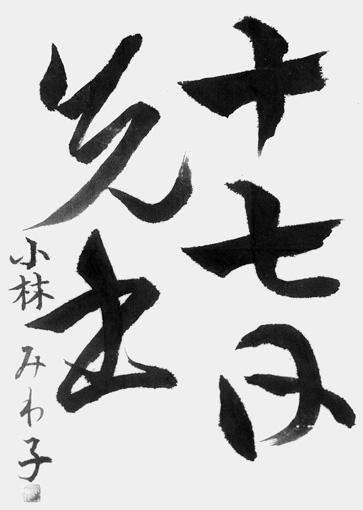 十七日
先書
小林みわ子